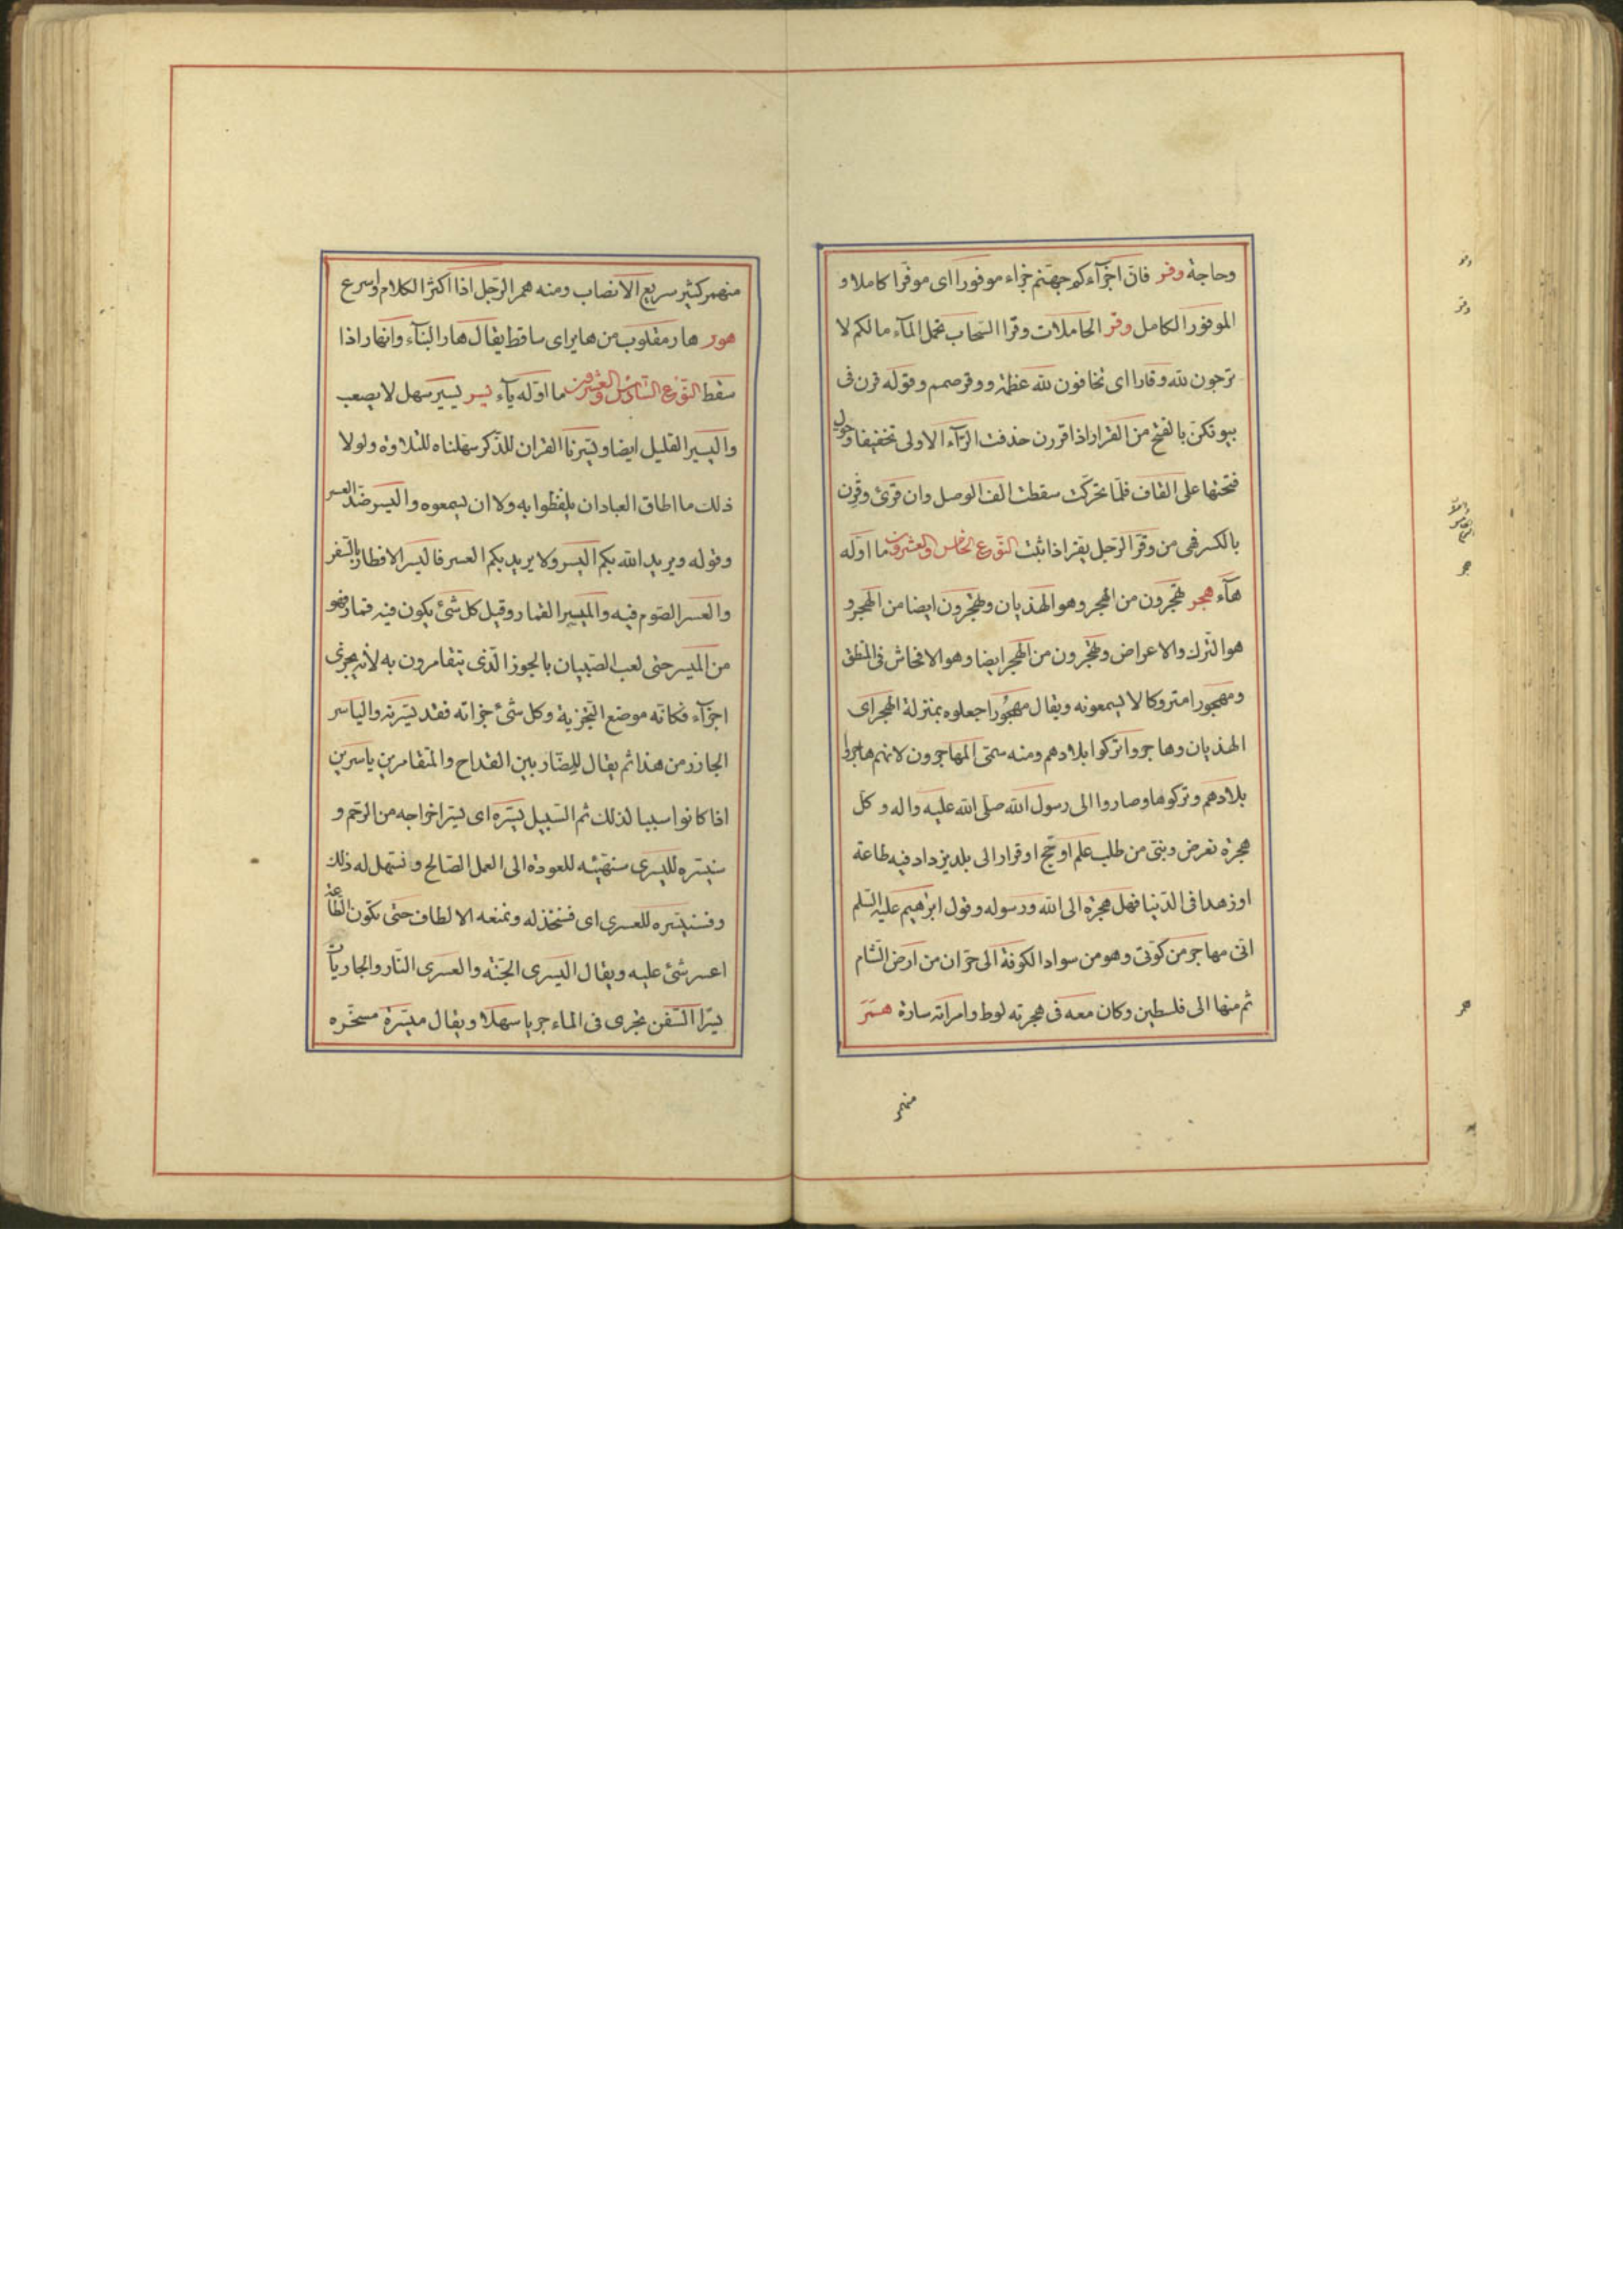 وحاجة وفر فان جزآءكم جهنم جزاء موفورا اى موفرا كاملا و
الموفور الكامل وقر الحاملات وقرا السحاب تحمل المآء مالكم لا
ترجون لله وقارا اى تخافون لله عظمة ووقر صمم وقوله قرن فى
بيوتكن بالفتح من القرار اذا قررن حذفت الرآء الاولى تخفيفا وحول
فتحتها على القاف فلما تحركت سقطت الف الوصل وان قرئ وقرن
بالكسر فهى من وقر الرجل يقر اذا ثبت النوع الخامس والعشرون ما اوله
هآء هجر تهجرون من الهجر وهو الهذيان وتهجرون ايضا من الهجر و
هو الترك والاعراض وتهجرون من الهجر ايضا وهو الافحاش فى المنطق
ومهجورا متروكا لا يسمعونه ويقال مهجورا جعلوه بمنزلة الهجر اى
الهذيان وهاجروا تركوا بلادهم ومنه سمى المهاجرون لانهم هاجروا
بلادهم وتركوها وصاروا الى رسول الله صلى الله عليه واله وكل
هجرة لغرض دينى من طلب علم او حج او فرار الى بلد يزداد فيه طاعة
او زهدا فى الدنيا فهى هجرة الى الله ورسوله وقول ابرهيم عليه السلم
انى مهاجر من كوثى وهو من سواد الكوفة الى حران من ارض الشام
ثم منها الى فلسطين وكان معه فى هجرته لوط وامراته سارة همر
منهمر
منهمر كثير سريع الانصباب ومنه همر الرجل اذا اكثر الكلام واسرع
هور هار مقلوب من هاير اى ساقط يقال هار البنآء وانهار اذا
سقط النوع السادس والعشرون ما اوله يآء يسر يسير سهل لا يصعب
واليسير القليل ايضا ويسرنا القران للذكر سهلناه للتلاوة ولولا
ذلك ما اطاق العباد ان يلفظوا به ولا ان يسمعوه واليسر ضد العسر
وقوله ويريد الله بكم اليسر ولا يريد بكم العسر فاليسر الافطار بالسفر
والعسر الصوم فيه والميسر القمار وقيل كل شئ يكون فيه قمار فهو
من الميسر حتى لعب الصبيان بالجوز الذى يتقامرون به لانه يجزى
اجزآء فكانه موضع التجزية وكل شئ جزاته فقد يسرته والياسر
الجازر من هذا ثم يقال للضاربين القداح والمتقامرين ياسرين
اذا كانوا سببا لذلك ثم السبيل يسره اى يسر اخراجه من الرحم و
سنيسره لليسرى سنهيئه للعودة الى العمل الصالح ونسهل له ذلك
وفسنيسره للعسرى اى فسنخذله ونمنعه الالطاف حتى تكون الطاعة
اعسر شئ عليه ويقال اليسرى الجنة والعسرى النار والجاريات
يسرا السفن تجرى فى الماء جريا سهلا ويقال ميسرة مسخره